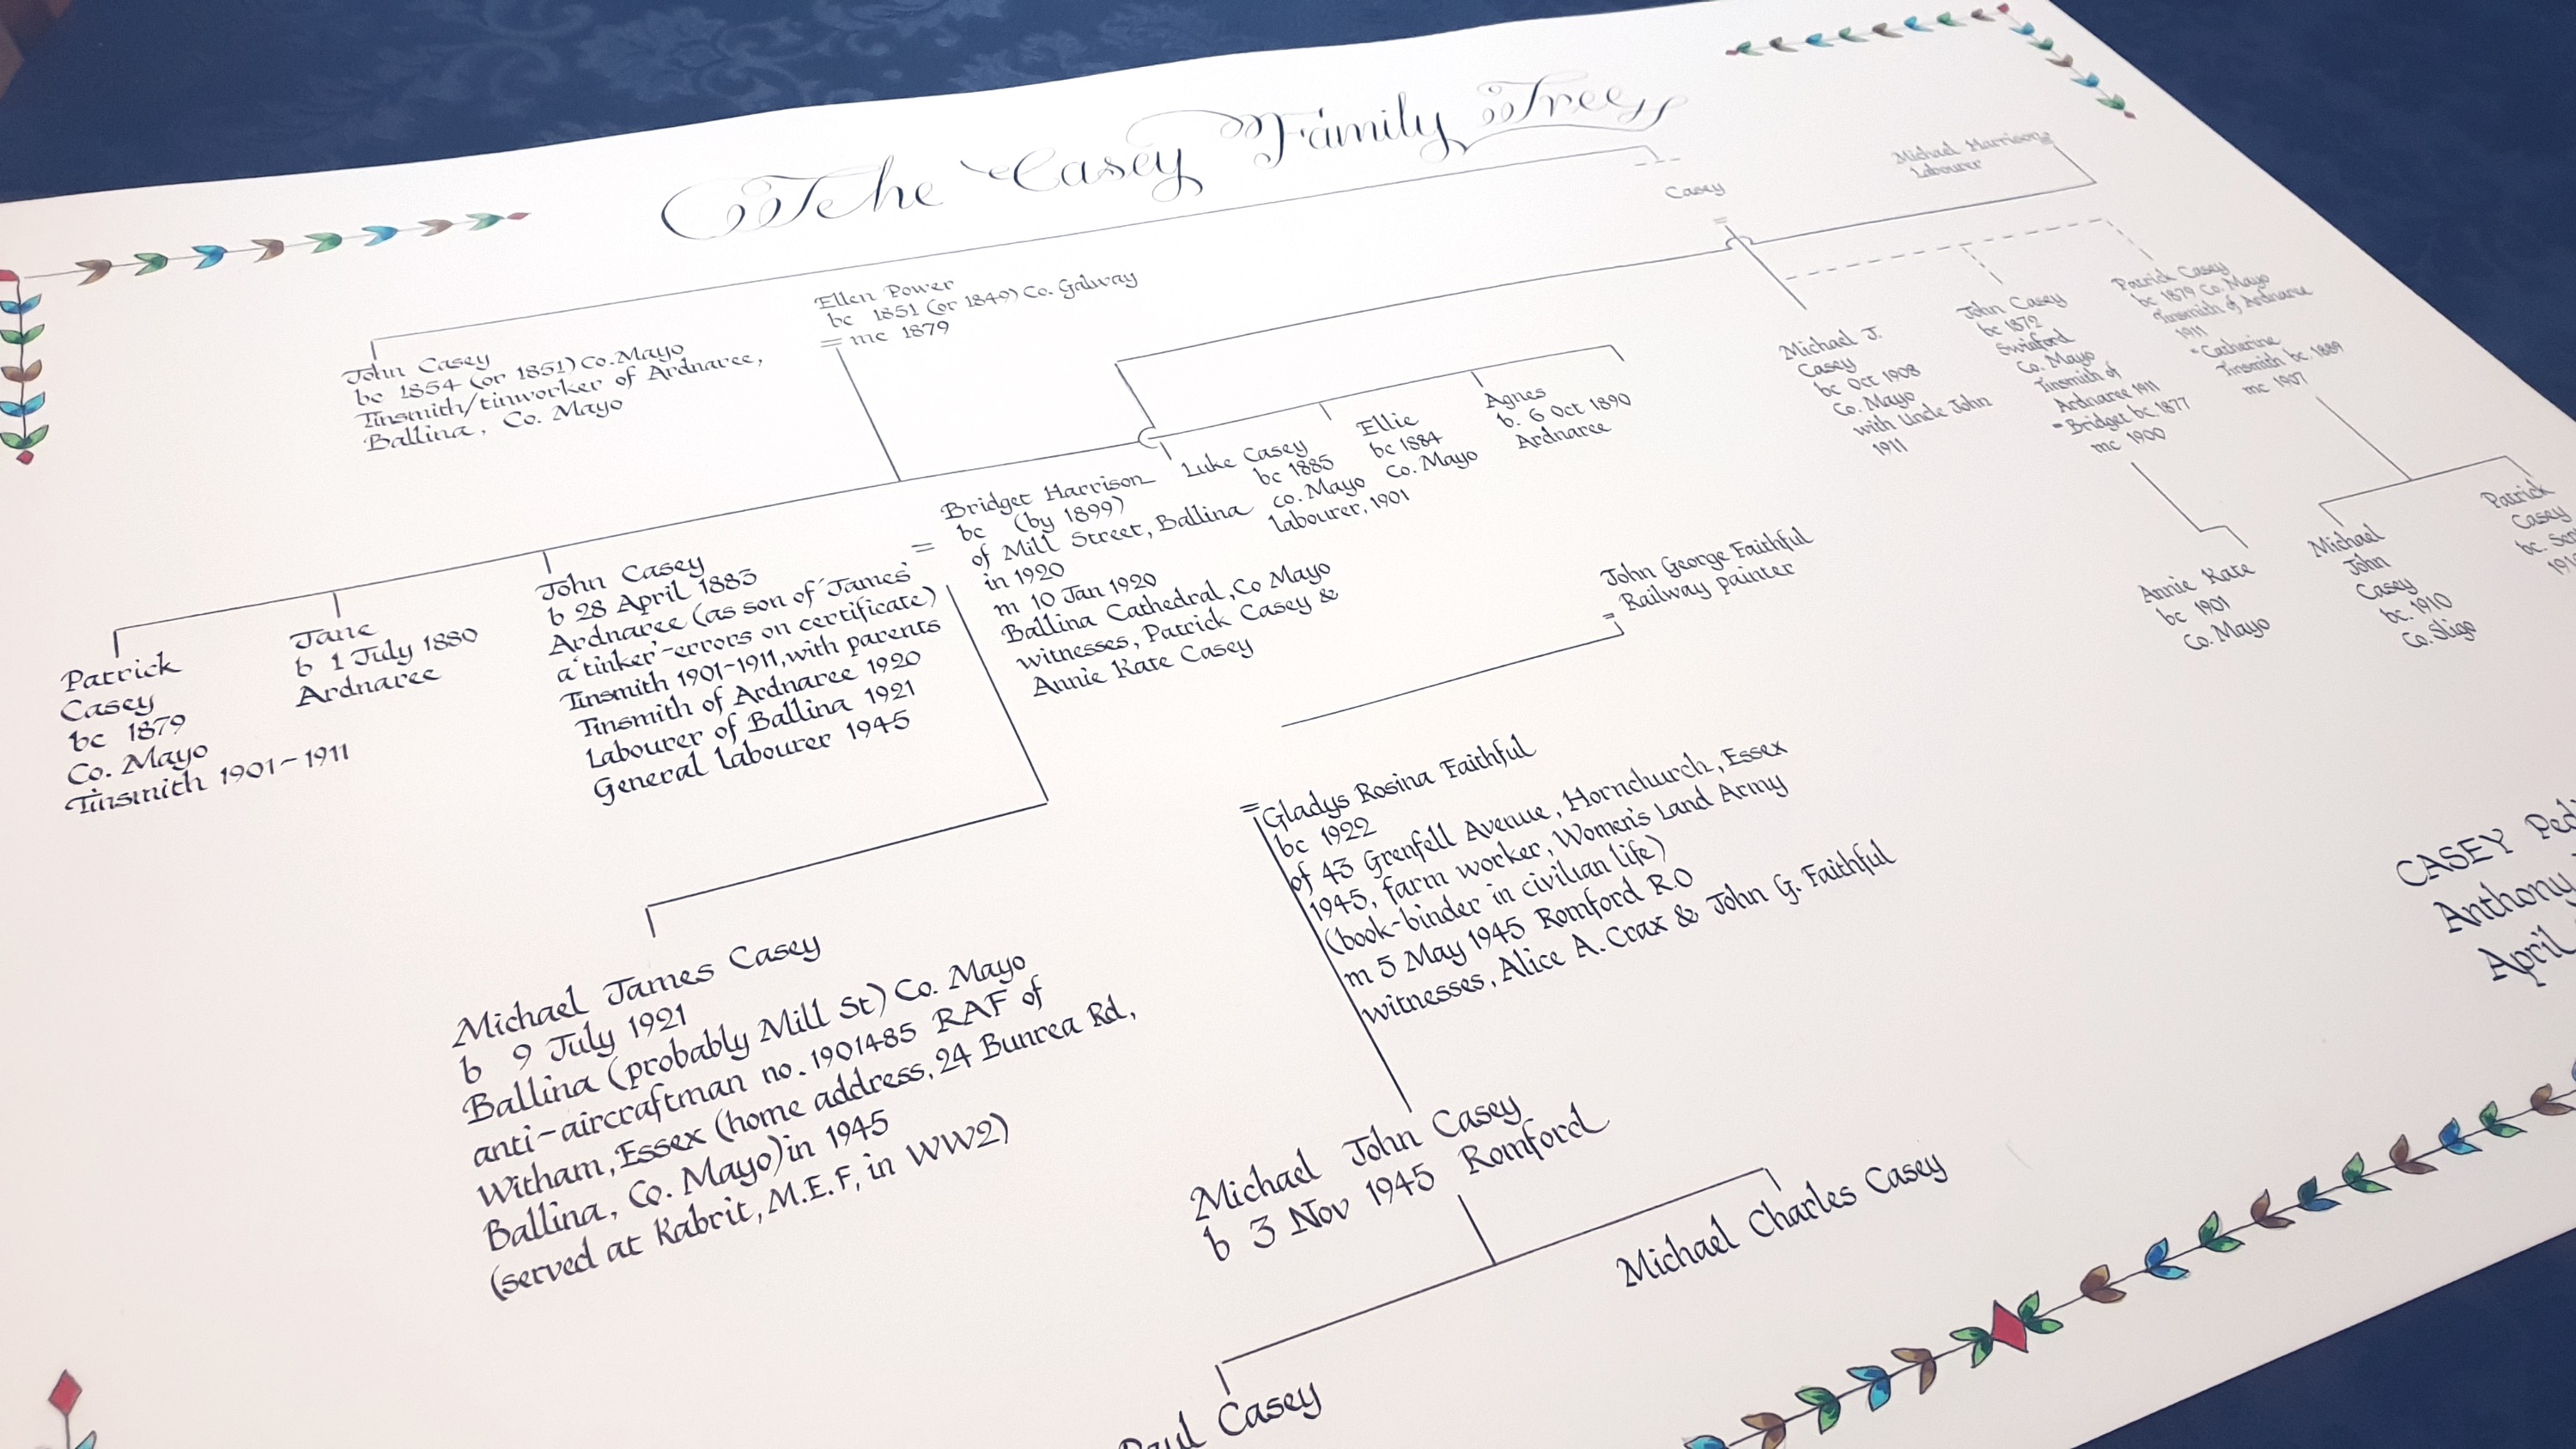 The Casey Family Tree
Casey
Michael Harrison
Labourer
Ellen Power
bc 1851 (or 1849) Co. Galway
= mc 1879
John Casey
bc 1854 (or 1851) Co. Mayo
Tinsmith/tinworker of Ardnaree,
Ballina, Co. Mayo
Patrick
Casey
bc 1879
Co. Mayo
Tinsmith 1901-1911
Jane
b 1 July 1880
Ardnaree
John Casey
b 28 April 1883
Ardnaree (as son of 'James'
a 'tinker'-errors on certificate)
Tinsmith 1901-1911, with parents
Tinsmith of Ardnaree 1920
Labourer of Ballina 1921
General labourer 1945
=
Bridget Harrison
bc (by 1899)
of Mill Street, Ballina
in 1920
m 10 Jan 1920
Ballina Cathedral, Co Mayo
witnesses, Patrick Casey &
Annie Kate Casey
Luke Casey
bc 1885
Co. Mayo
labourer, 1901
Ellie
bc 1884
Co. Mayo
Agnes
b. 6 Oct 1890
Ardnaree
Michael J.
Casey
bc Oct 1908
Co. Mayo
with Uncle John
1911
John Casey
bc 1872
Swinford
Co. Mayo
Tinsmith of
Ardnaree 1911
= Bridget bc. 1877
mc 1900
Patrick Casey
bc 1879 Co. Mayo
Tinsmith of Ardnaree
1911
= Catherine
Tinsmith bc. 1889
mc 1907
Annie Kate
bc 1901
Co. Mayo
Michael
John
Casey
bc. 1910
Co. Sligo
Patrick
Casey
bc.
John George Faithful
= Railway painter
= Gladys Rosina Faithful
bc 1922
of 43 Grenfell Avenue, Hornchurch, Essex
1945, farm worker, Women's Land Army
(book-binder in civilian life)
m 5 May 1945 Romford R.O
witnesses, Alice A. Crax & John G. Faithful
Michael James Casey
b 9 July 1921
Ballina (probably Mill St) Co. Mayo
anti-aircraftman no. 1901485 RAF of
Witham, Essex (home address, 24 Bunrea Rd,
Ballina, Co. Mayo) in 1945
(served at Kabrit, M.E.F, in WW2)
Michael John Casey
b 3 Nov 1945 Romford
Michael Charles Casey
Paul Casey
CASEY Ped
Anthony
April